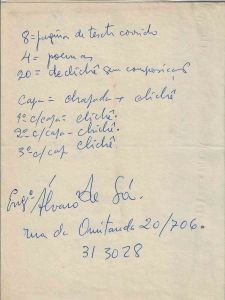 8= página de texto corrido
4= poemas
20= declichê sem composição
capa = chapada + clichê
1ª c/capa= clichê.
2ª c/capa- clichê.
3ª c/cap clichê
Engº Álvaro de Sá.
rua da Quitanda 20/706.
31 3028